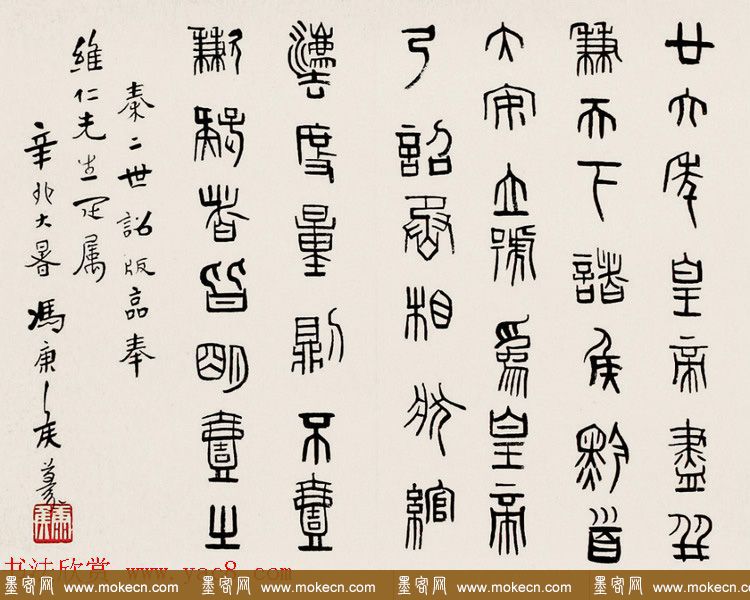 廿六年皇帝盡并
兼天下諸侯黔首
大安立號為皇帝
乃詔丞相狀綰
灋度量則不壹
歉疑者皆明壹之
秦二世詔版奉
維仁先生正属
辛丑大暑馮康侯
书法欣赏 www.yac8.com
墨客网 www.mokecn.com 墨客网 www.mokecn.com 墨客网 www.mokecn.com 墨客网 www.mokecn.com